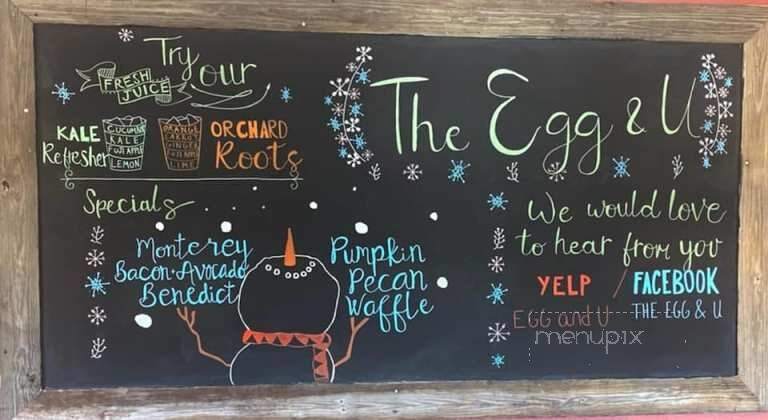 Try our
FRESH
JUICE
KALE
Refresher
CUCUMBER
KALE
FUJI APPLE
LEMON
ORANGE
CARROT
GINGER
FUJI APPLE
LIME
ORCHARD
Roots
Specials
Monterey
Bacon Avocado
Benedict
Pumpkin
Pecan
Waffle
The Egg & U
We would love
to hear from you
YELP / FACEBOOK
EGG and U
THE EGG & U
menupix